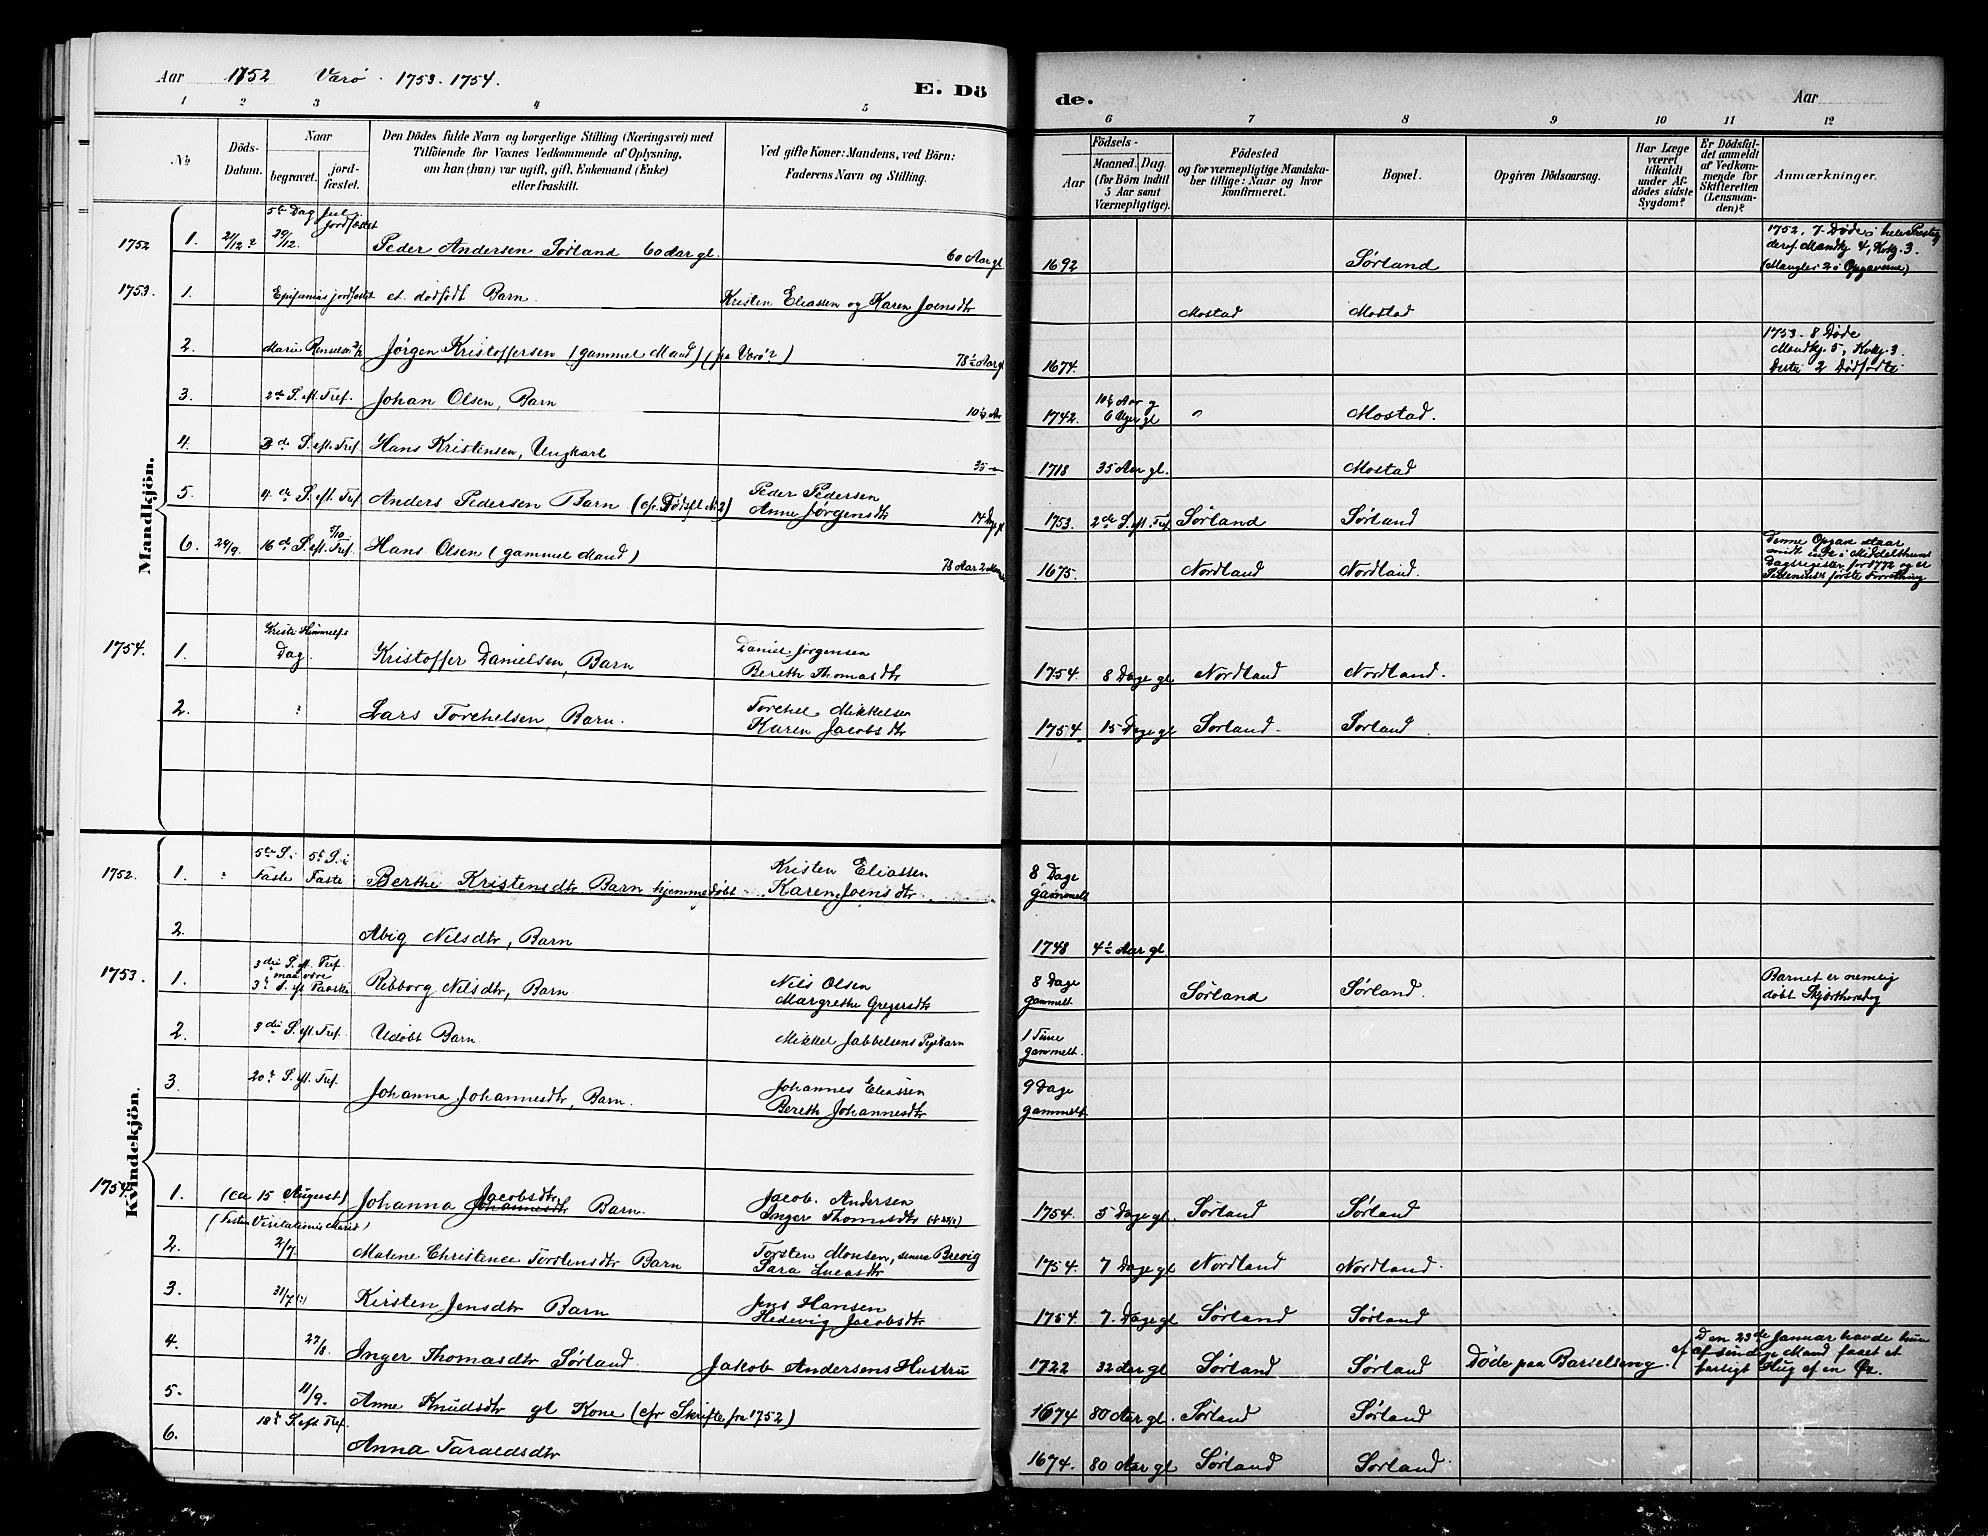 Aar 1752 Værø. 1753. 1754.
E. Dö
de.
Aar
1 2 3 4 5
6 7 8 9 10 11 12
№
Döds-Datum.
Naar
begravet.
jord-fæstet.
Den Dödes fulde Navn og borgerlige Stilling (Næringsvei) med
Tilföiende for Voxnes Vedkommende af Oplysning,
om han (hun) var ugift, gift, Enkemand (Enke)
eller fraskilt.
Ved gifte Koner: Mandens, ved Börn:
Faderens Navn og Stilling.
Födsels-
Aar
Maaned. Dag.
(for Börn indtil
5 Aar samt
Værnepligtige).
Födested
og for værnepligtige Mandska-
ber tillige: Naar og hvor
konfirmeret.
Bopæl.
Opgiven Dödsaarsag.
Har Læge
været
tilkaldt
under Af-
dödes sidste
Sygdom?
Er Dödsfal-
det anmeldt
af Vedkom-
mende for
Skifteretten
(Lensman-
den)?
Anmærkninger.
Mandkjön.
1752 1. 21/12? 5te Dag Jul jordfæstet 29/12. Peder Andersen Sørland 60 Aar gl. 60 Aar gl 1692 Sørland
1752, 7 Døde i hele Prestegj
deraf Mandkj 4, Kvkj. 3.
(Mangler 2 i Opgaverne)
1753. 1. Epifanias jordfæstet et dødfødt Barn. Kristen Eliassen og Karen Joensdtr Mostad Mostad
2. Mariæ Renselse 2/2 Jørgen Kristoffersen (gammel Mand) (fra Værø?) 78½ Aar gl 1674.
1753 - 8 Døde
Mandkj. 5, Kvkj. 3.
Derti 2 Dødfødte
3. 2de S. eft. Tref. Johan Olsen, Barn 10¼ Aar 1742. 10¼ Aar og 6 Uger gl " Mostad.
4. 3die S. eft. Tref. Hans Kristensen, Ungkarl 35 — 1718 35 Aar gl. Mostad
5. 4de S. eft Tref Anders Pedersen Barn (cfr. Fødsel Nr. 2) Peder Pedersen
Anne Jørgensdtr 14 Dage gl 1753. 2de S. eft. Tref Sørland Sørland
6. 29/9. 16de S. eft. Tref. 7/10 Hans Olsen (gammel Mand) 78 Aar 2 Maan 1675. Nordland Nordland.
Denne Opgave staar
midt inde i Middelthuns
Dagsregister for 1772 og er
første Forretning
1754. 1. Kristi Himmelfs Dag. Kristoffer Danielsen, Barn Daniel Jørgensen
Bereth Thomasdtr 1754. 8 Dage gl Nordland Nordland.
2. ? Lars Torchelsen, Barn. Torchel Mikkelsen
Karen Jacobsdtr 1754. 15 Dage gl Sørland. Sørland
Kvindekjön.
1752. 1. ? 5te S. i Faste 5te S. i Faste Berthe Kristensdtr Barn hjemmedøbt Kristen Eliassen
Karen Joensdtr. 8 Dage gammelt
2. Abig Nilsdtr, Barn 1748 4½ Aar gl
1753. 1. 3die S. eft. Tref. maa være 3die S. ef Paaske Ribborg Nilsdtr, Barn. Nils Olsen
Margrethe Gregersdtr 8 Dage gammelt. Sørland Sørland.
Barnet er nemlig
døbt Skjærthorsdag
2. 3die S. eft. Tref. Udøbt Barn. Mikkel Jabbelsens Pigebarn 1 Time gammelt.
3. 20de S. eft. Tref. Johanna Johannesdtr, Barn. Johannes Eliassen
Bereth Johannesdtr 9 Dage gammelt
1754. 1. (ca 15 August) Johanna Jacobsdtr Johannesdtr Barn. Jacob Andersen
Inger Thomasdtr 1754. 5 Dage gl. Sørland Sørland
2. (Festum Visitationis Mariæ) 2/7. Malene Christence Torstensdtr Barn Torsten Monsen, senere Brevig
Sara Lucasdtr 1754. 7 Dage gl Nordland Nordland.
3. 31/7 (?) Kirsten Jensdtr Barn Jens Hansen
Hedevig Jacobsdtr 1754 7. Dage gl Sørland Sørland
4. 27/8 Inger Thomasdtr Sørland. Jakob Andersens Hustru 1722 32 Aar gl Sørland Sørland Døde paa Barselseng. cf
Den 23de Januar havde hun
af sin Mand faaet et
farligt Hug af en Øx.
5. 11/9. Anne Knudsdtr gl Kone (cfr Skrifte fra 1752) 1674 80 Aar gl Sørland Sørland
6. 18de S. eft Tref. Anna Taraldsdtr 1674. 80 Aar gl Sørland Sørland